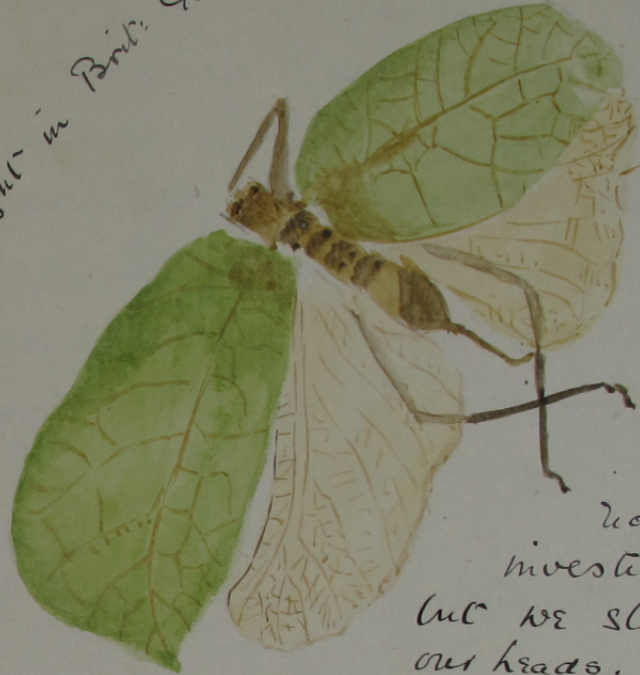 in Brit:
investi
but we sl
our heads.